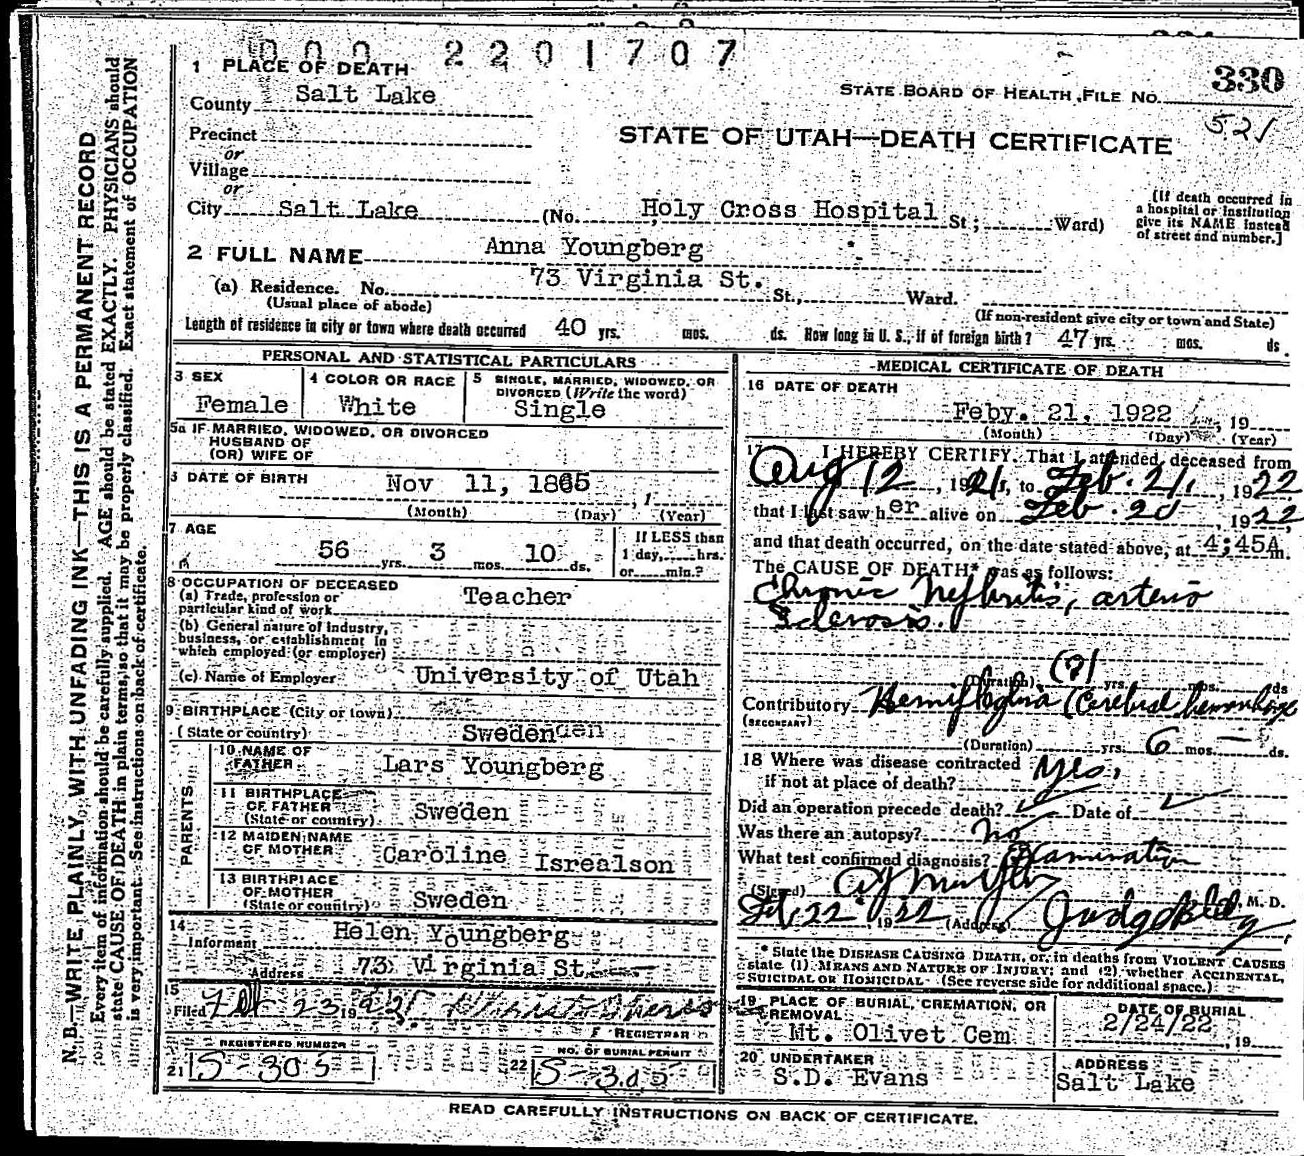 2201707
1 PLACE OF DEATH
County Salt Lake
STATE BOARD OF HEALTH, FILE No. 330
521
Precinct
or
Village
or
STATE OF UTAH—DEATH CERTIFICATE
City Salt Lake (No. Holy Cross Hospital St.; Ward)
[If death occurred in
a hospital or Institution
give its NAME instead
of street and number.]
2 FULL NAME Anna Youngberg
(a) Residence. No. 73 Virginia St. St., Ward.
(Usual place of abode)
(If non-resident give city or town and State)
Length of residence in city or town where death occurred 40 yrs. mos. ds. How long in U. S., if of foreign birth? 47 yrs. mos. ds.
PERSONAL AND STATISTICAL PARTICULARS
3 SEX
Female
4 COLOR OR RACE
White
5 SINGLE, MARRIED, WIDOWED, OR
DIVORCED (Write the word)
Single
5a IF MARRIED, WIDOWED, OR DIVORCED
HUSBAND OF
(OR) WIFE OF
DATE OF BIRTH Nov 11, 1865, 1
(Month) (Day) (Year)
7 AGE
56 yrs. 3 mos. 10 ds.
If LESS than
1 day, hrs.
or min.?
8 OCCUPATION OF DECEASED
(a) Trade, profession or
particular kind of work Teacher
(b) General nature of Industry,
business, or establishment in
which employed (or employer)
(c) Name of Employer University of Utah
9 BIRTHPLACE (City or town)
(State or country) Sweden
PARENTS
10 NAME OF
FATHER Lars Youngberg
11 BIRTHPLACE
OF FATHER
(State or country) Sweden
12 MAIDEN NAME
OF MOTHER Caroline Isrealson
13 BIRTHPLACE
OF MOTHER
(State or country) Sweden
14
Informant Helen Youngberg
Address 73 Virginia St.
15
Filed Feb 23 1922
REGISTRAR
REGISTERED NUMBER
21 S-305
NO. OF BURIAL PERMIT
22 S-305
MEDICAL CERTIFICATE OF DEATH
16 DATE OF DEATH
Feby. 21, 1922, 19
(Month) (Day) (Year)
17 I HEREBY CERTIFY, That I attended deceased from
Aug 12, 1921, to Feb. 21, 1922
that I last saw her alive on Feb. 20, 1922,
and that death occurred, on the date stated above, at 4:45A m.
The CAUSE OF DEATH* was as follows:
Chronic Nephritis, arterio
Sclerosis.
(?)
(Duration) yrs. mos. ds
Contributory Hemiplegia (Cerebral hemorrhage
(SECONDARY)
(Duration) yrs. 6 mos. — ds.
18 Where was disease contracted
if not at place of death? Yes.
Did an operation precede death? Date of
Was there an autopsy? no
What test confirmed diagnosis? Examination
(Signed) M. D.
Feb 22 1922 (Address) Judge Bldg,
* State the DISEASE CAUSING DEATH, or, in deaths from VIOLENT CAUSES
state (1) MEANS AND NATURE OF INJURY; and (2) whether ACCIDENTAL,
SUICIDAL OR HOMICIDAL. (See reverse side for additional space.)
19 PLACE OF BURIAL, CREMATION, OR
REMOVAL
Mt. Olivet Cem
DATE OF BURIAL
2/24/22, 19
20 UNDERTAKER
S.D. Evans
ADDRESS
Salt Lake
READ CAREFULLY INSTRUCTIONS ON BACK OF CERTIFICATE.
N. B.—WRITE PLAINLY, WITH UNFADING INK—THIS IS A PERMANENT RECORD
Every item of information should be carefully supplied. AGE should be stated EXACTLY. PHYSICIANS should
state CAUSE OF DEATH in plain terms, so that it may be properly classified. Exact statement of OCCUPATION
is very important. See instructions on back of certificate.